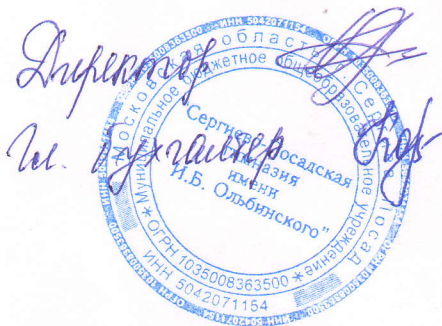 Директор
Гл. бухгалтер
Московская область г. Сергиев Посад
* Муниципальное бюджетное общеобразовательное учреждение *
Сергиево-Посадская
гимназия
имени
И.Б. Ольбинского"
ОГРН 1035008363500 *
ИНН 5042071154